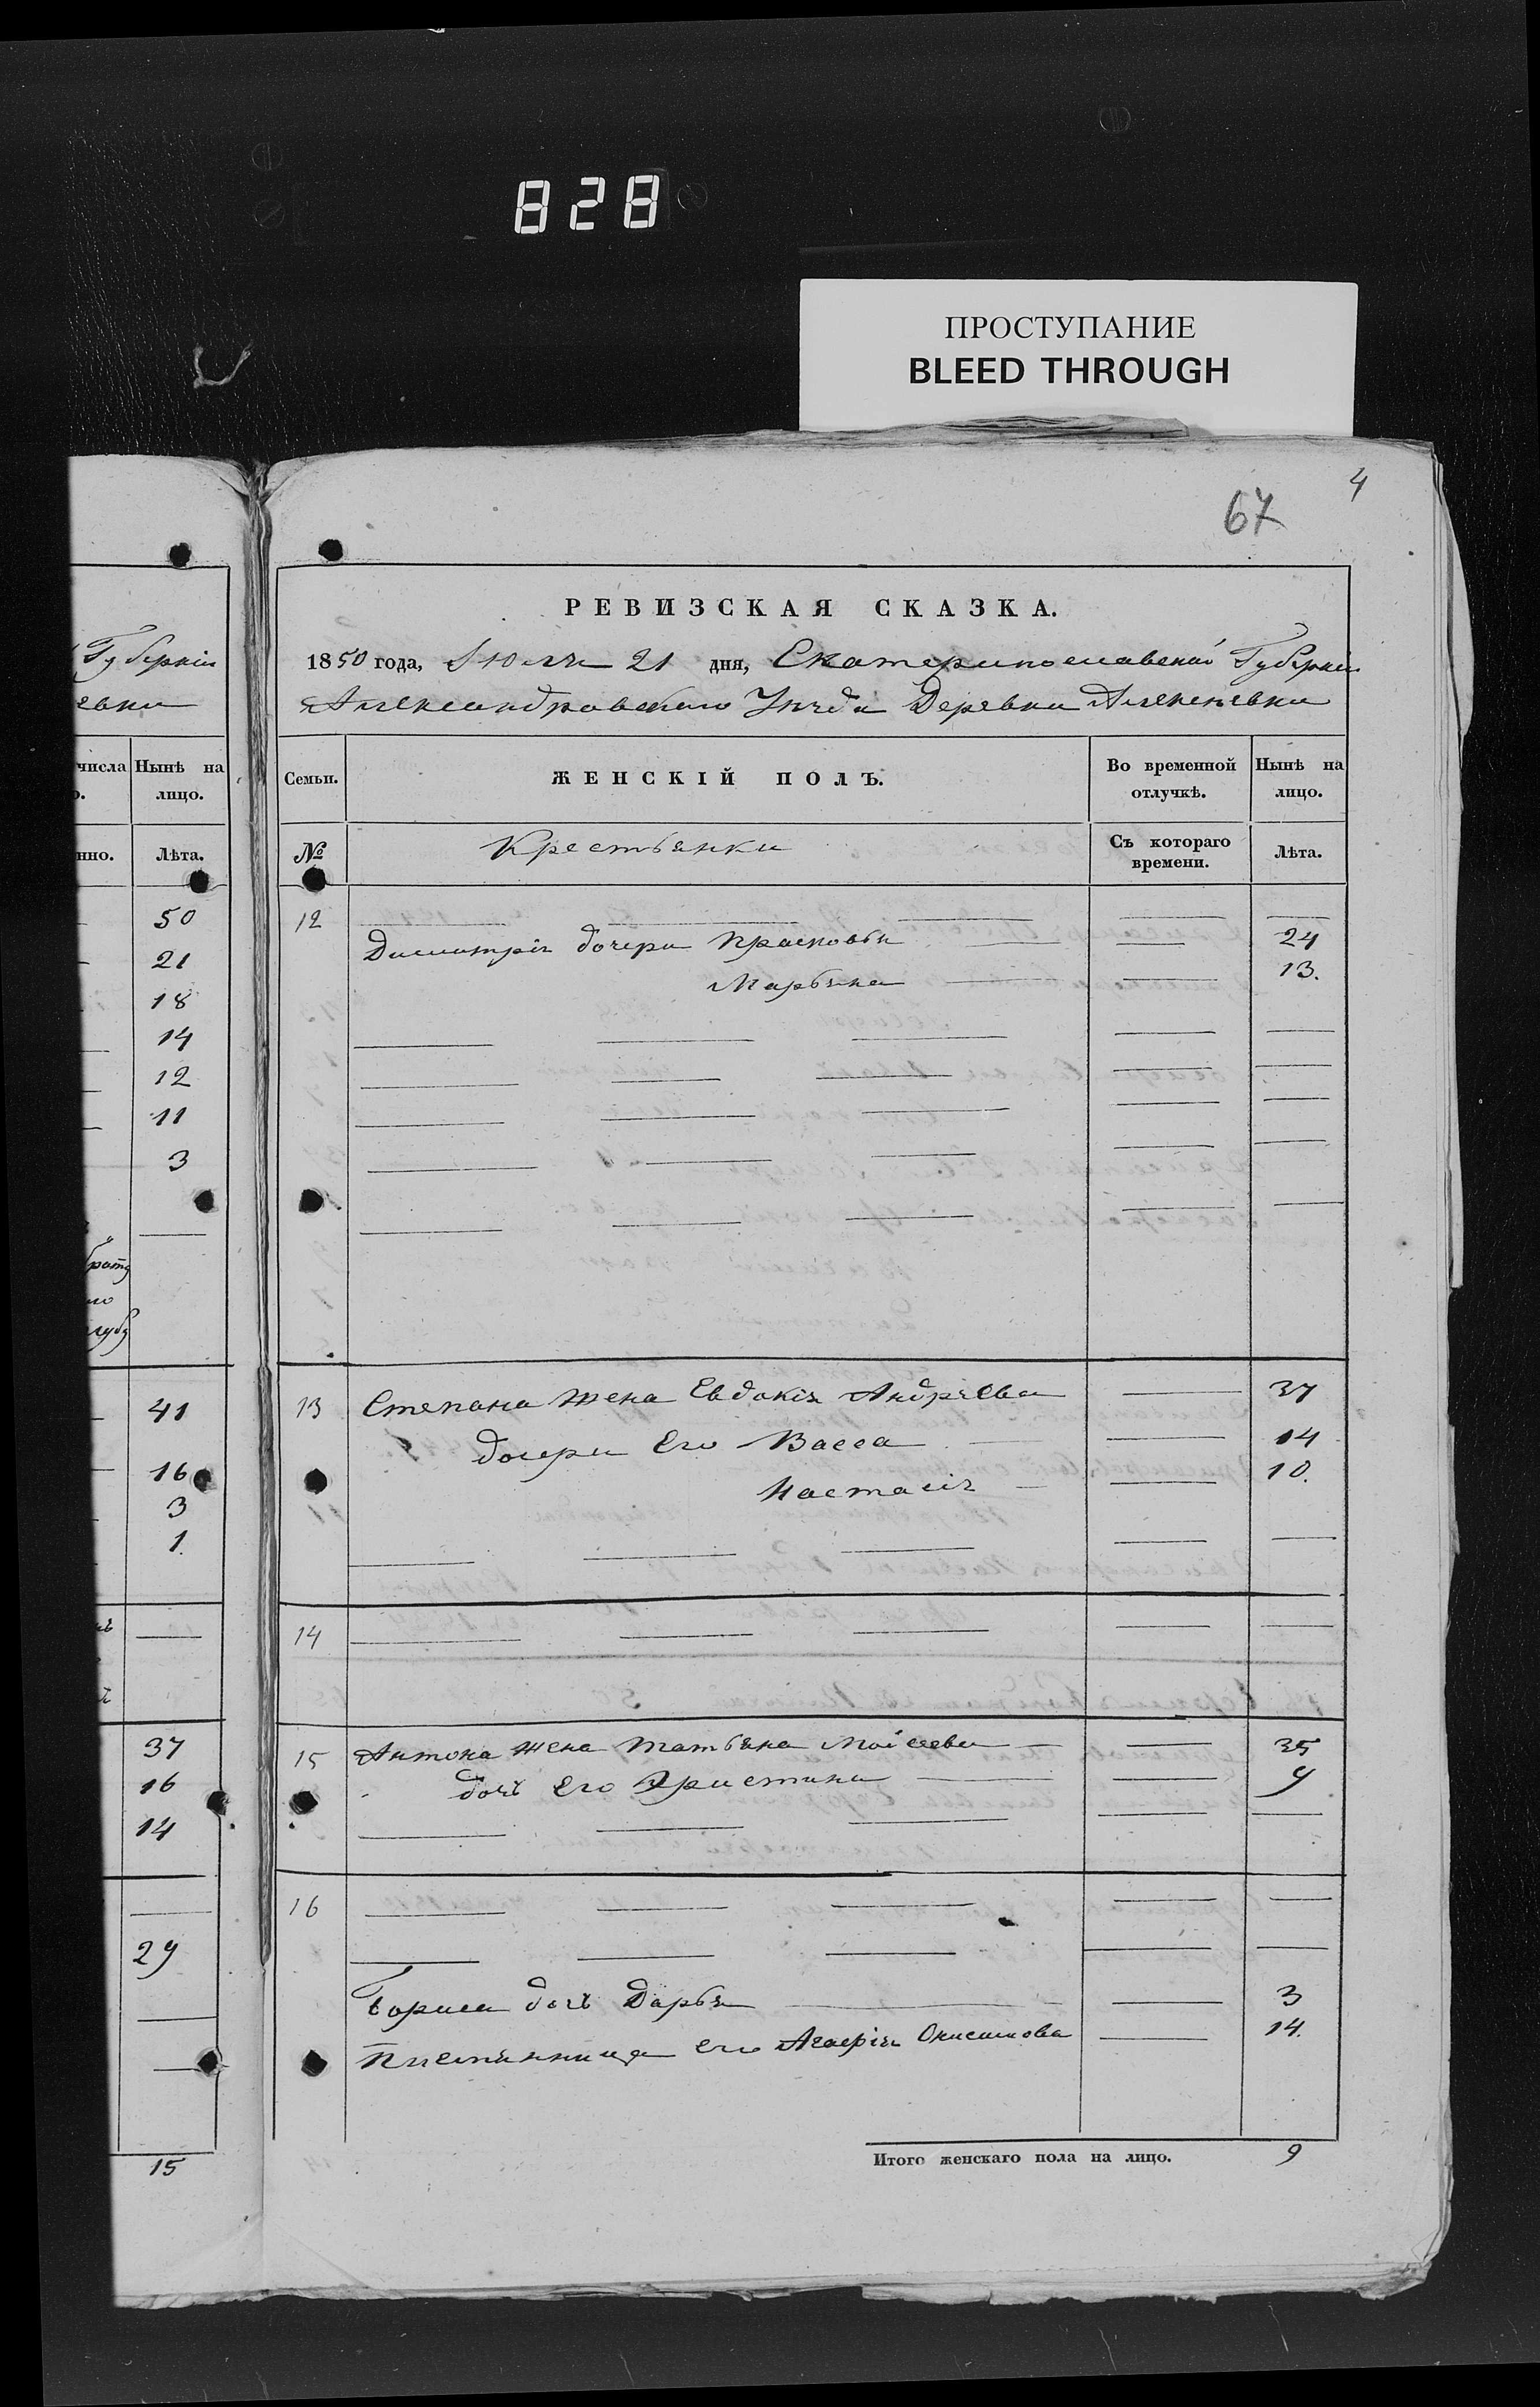 828
ПРОСТУПАНИЕ
BLEED THROUGH
4
67
Губерніи
евки
числа
Нынѣ на
лицо.
нно.
Лѣта.
50
21
18
14
12
11
3
41
16
3
1.
37
16
14
29
15
РЕВИЗСКАЯ СКАЗКА.
1850 года, Іюля 21 дня, Екатеринославской Губерніи
Александровскаго Уѣзда Деревни Алексѣевки
Семьи.
ЖЕНСКІЙ ПОЛЪ.
Во временной отлучкѣ.
Нынѣ на лицо.
№
Крестьянки
Съ котораго времени.
Лѣта.
12
Дмитрія дочери Прасковья 24
Марьяна 13.
13 Степана жена Евдокія Андрѣева 37
дочери Его Васса 14
Настасія 10.
14
15 Антона жена Татьяна Моісеева 35
дочь Его Христина 9
16
Бориса дочь Дарья 3
Племянница его Агафія Онисимова 14.
Итого женскаго пола на лицо. 9